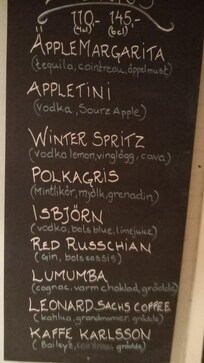 110,- 145,-
(4cl) (6cl)
ÄPPLEMARGARITA
(tequila, cointreau, äppelmust)
APPLETINI
(vodka, Sourz Apple)
WINTER SPRITZ
(vodka lemon, vinglögg, cava)
POLKAGRIS
(Mintlikör, mjölk, grenadin)
ISBJÖRN
(vodka, bols blue, limejuice)
RED RUSSCHIAN
(Gin, bolscassis)
LUMUMBA
(cognac, varm choklad, grädde)
LEONARD SACHS COFFEE
(kahlua, grandmarnier, grädde)
KAFFE KARLSSON
(Bailey's, grädde)